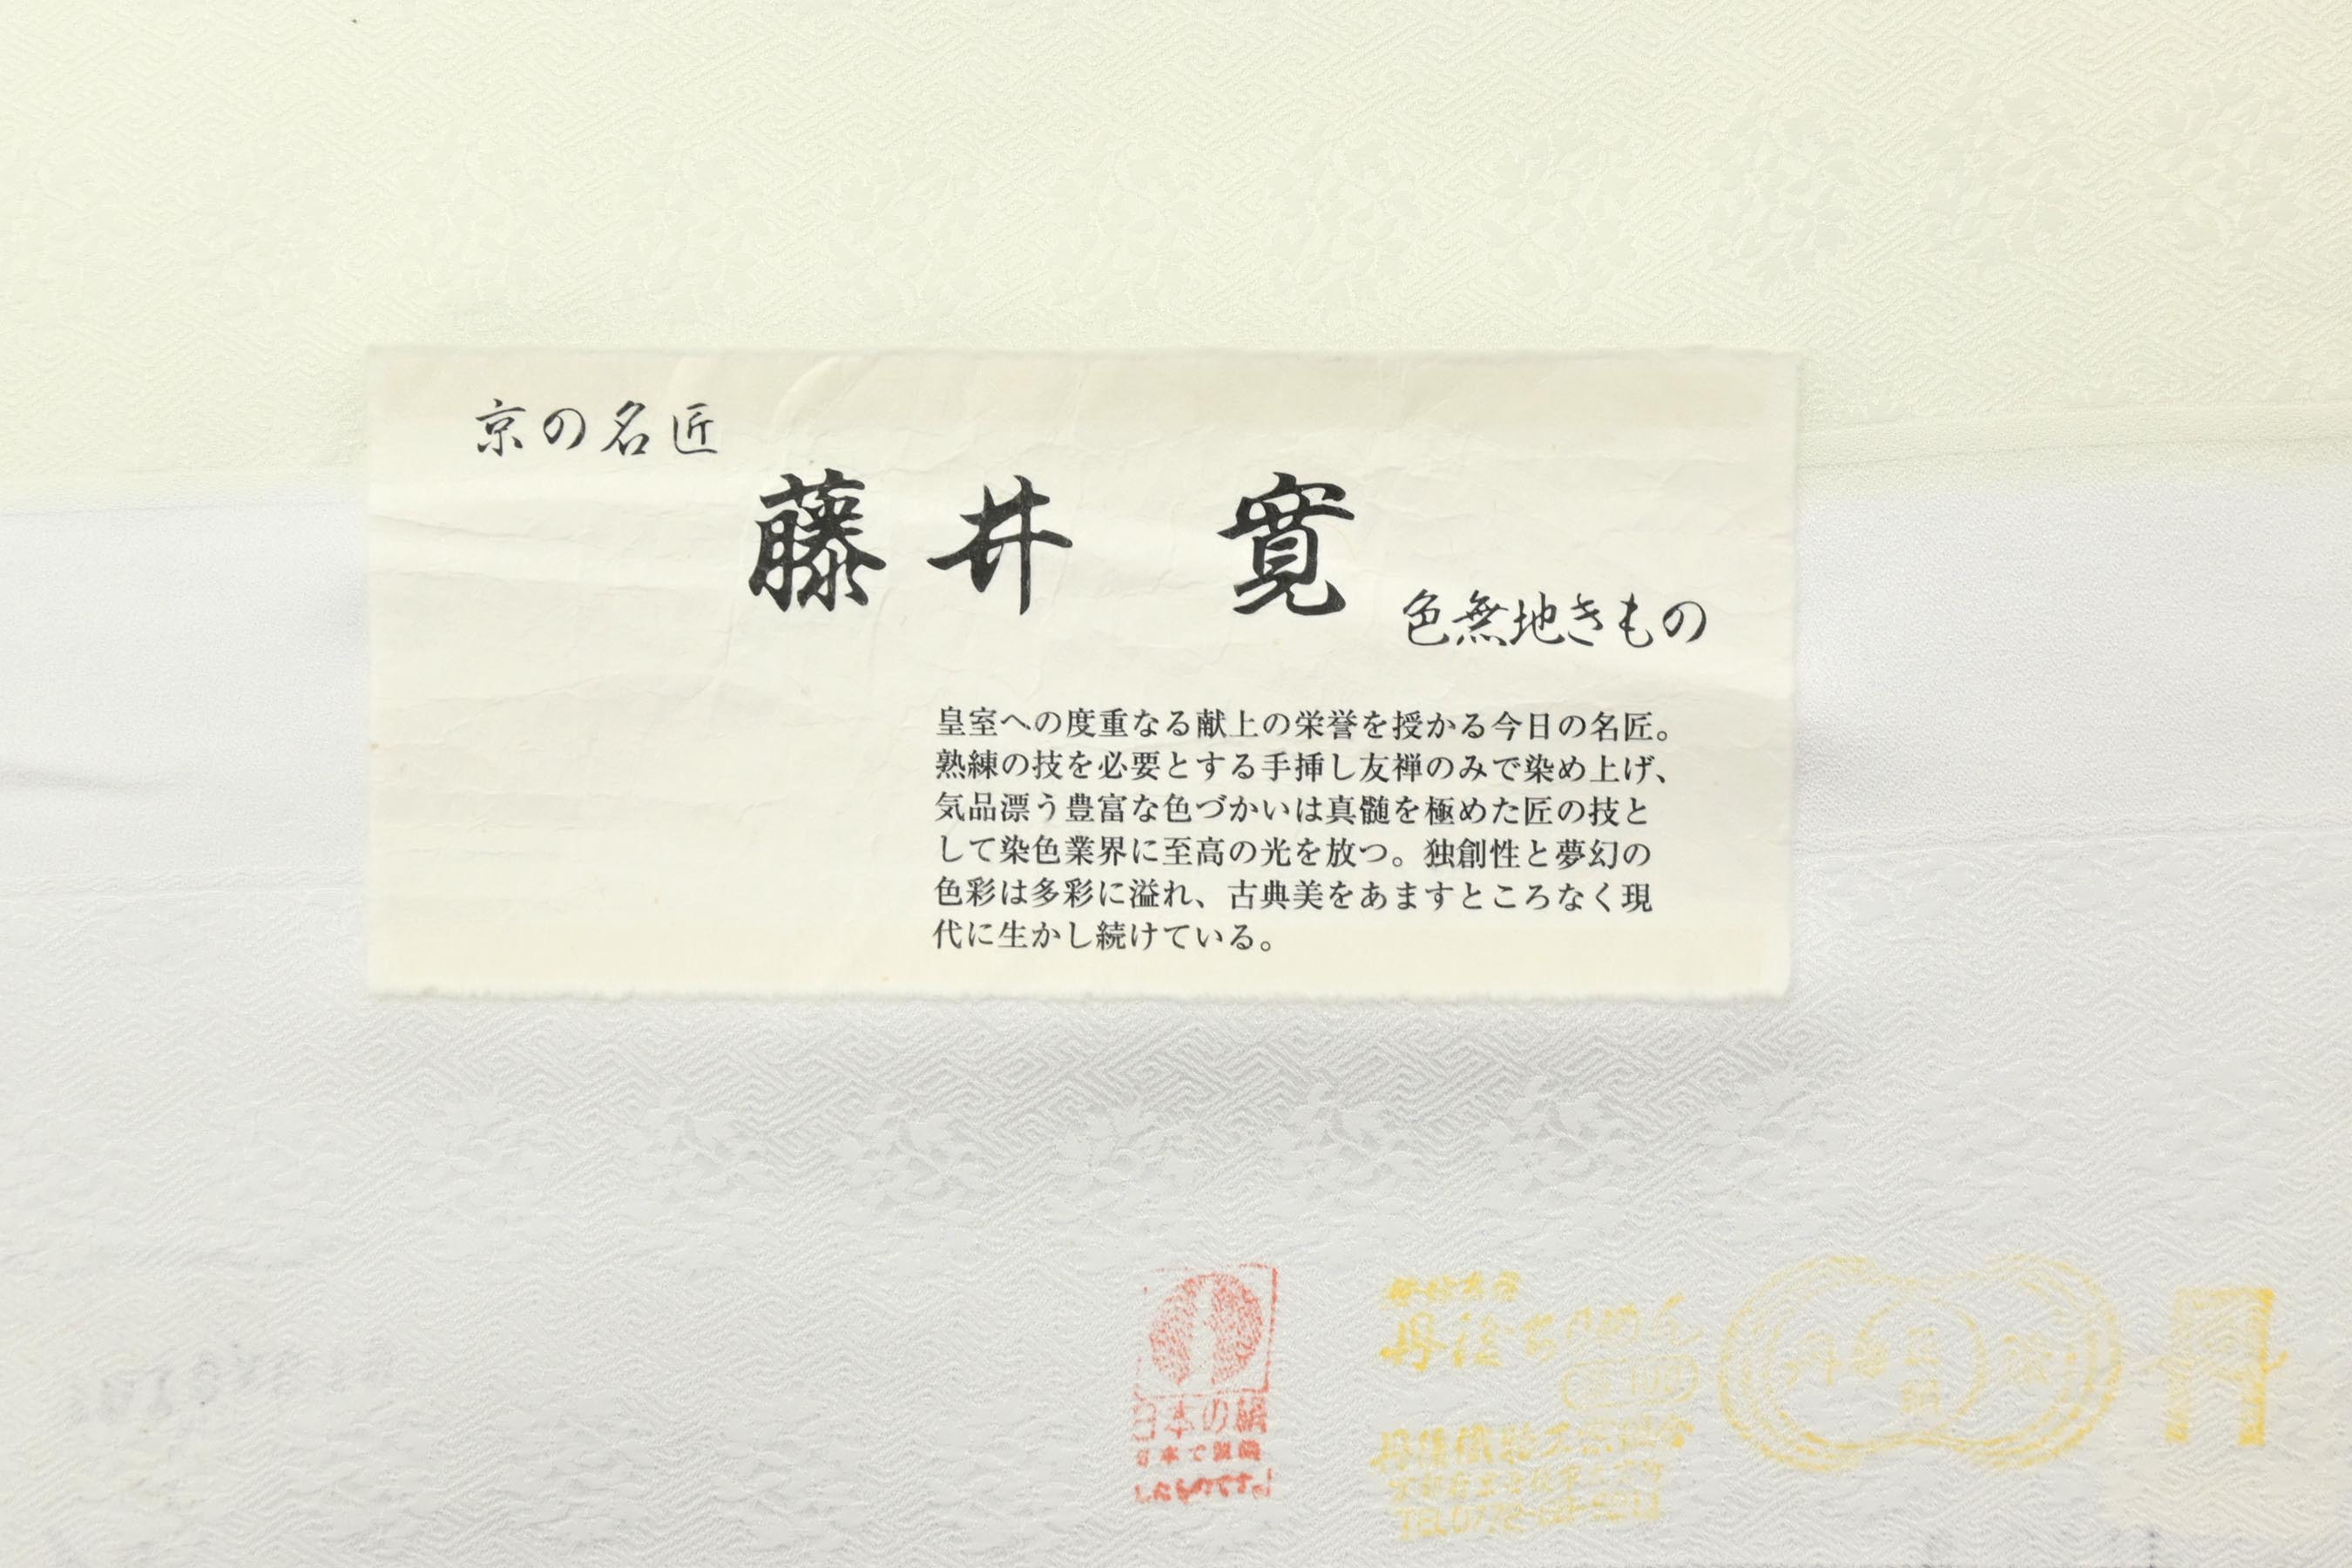 京の名匠
藤井 寛
色無地きもの
皇室への度重なる献上の栄誉を授かる今日の名匠。
熟練の技を必要とする手挿し友禅のみで染め上げ、
気品漂う豊富な色づかいは真髄を極めた匠の技と
して染色業界に至高の光を放つ。独創性と夢幻の
色彩は多彩に溢れ、古典美をあますところなく現
代に生かし続けている。
日本の絹
日本で製織
したものです。